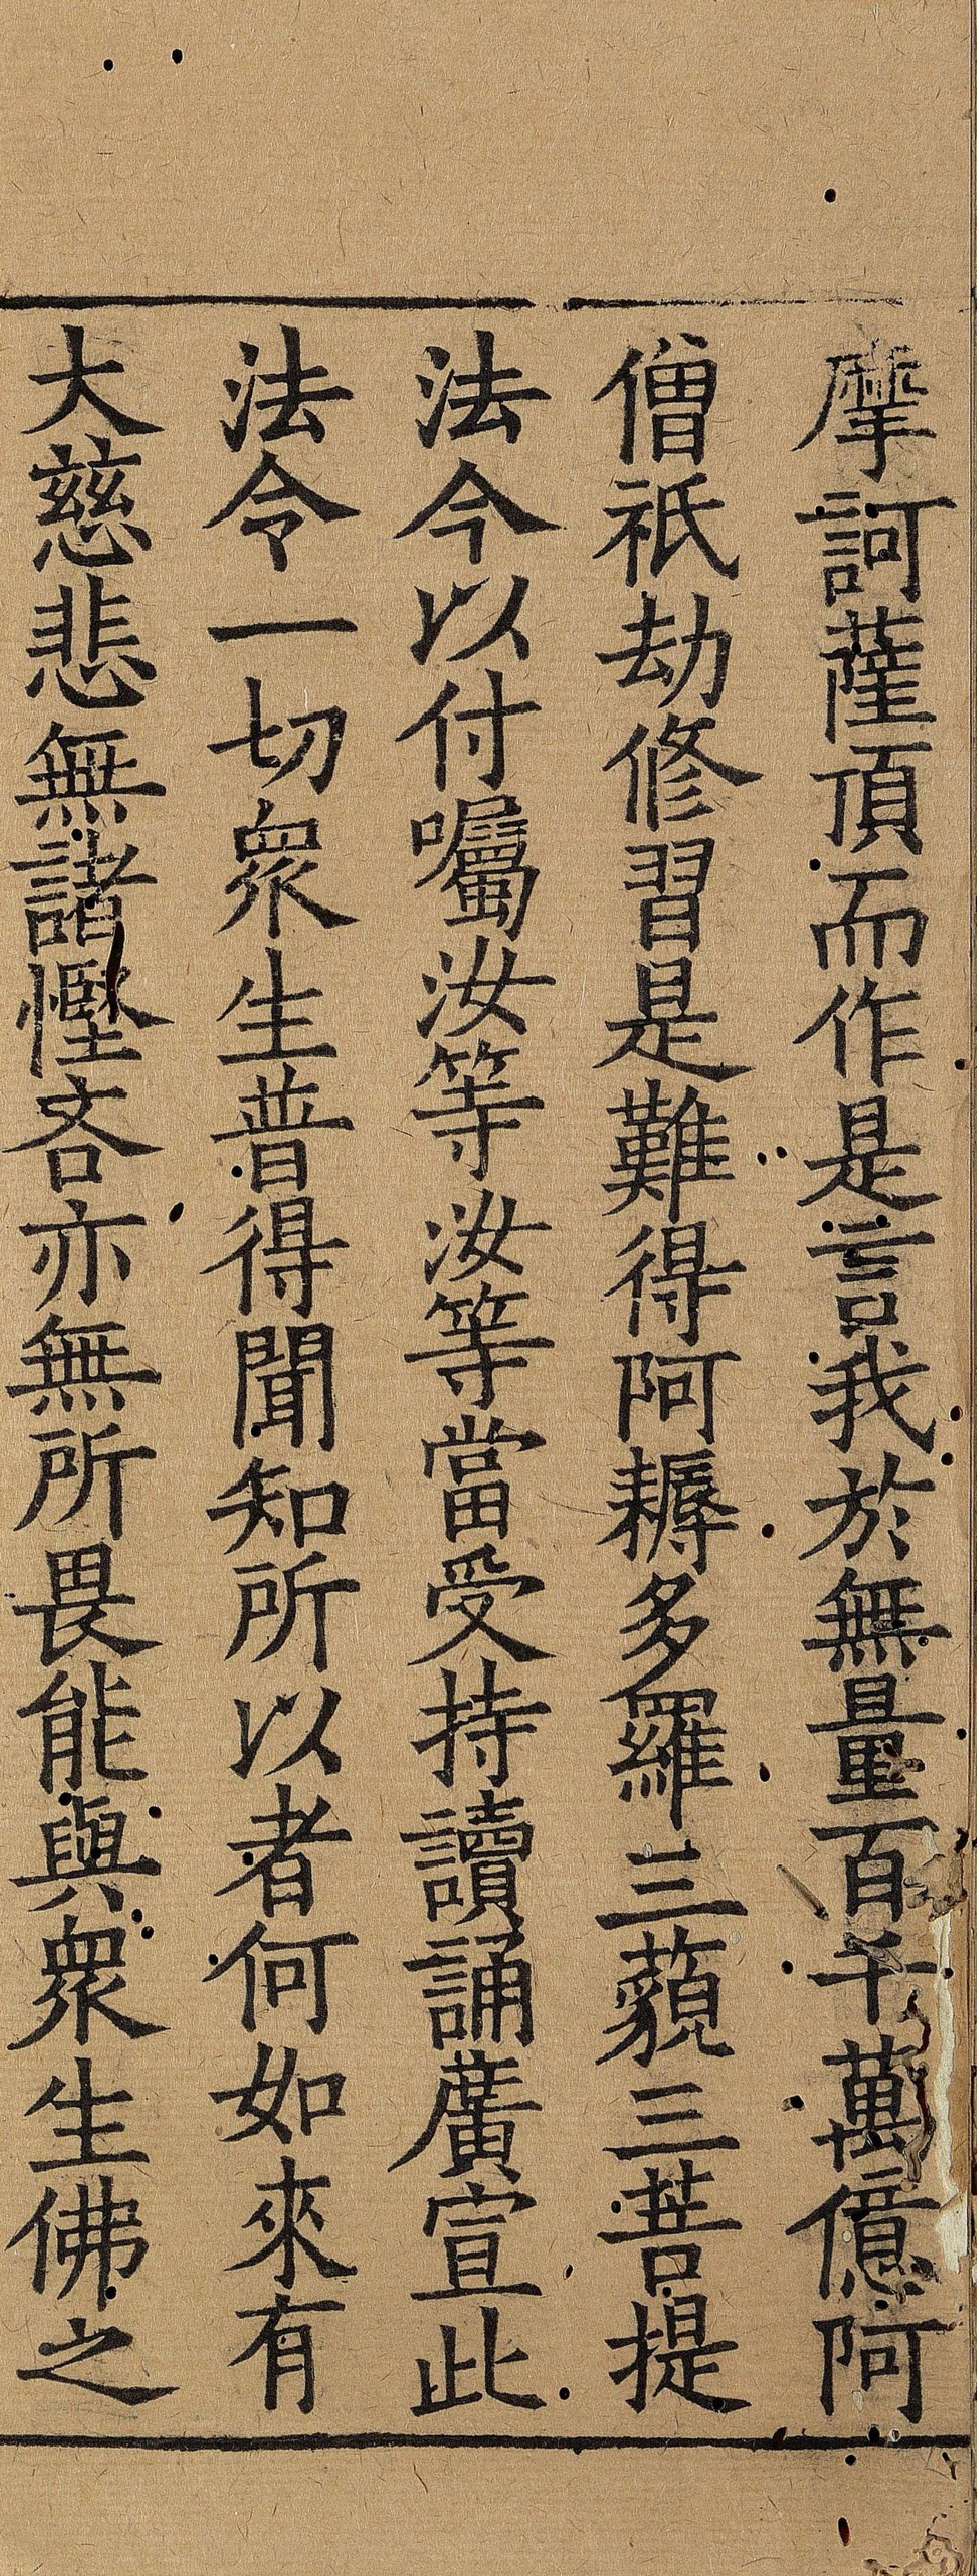 摩訶薩頂而作是言我於無量百千萬億阿
僧祇劫修習是難得阿耨多羅三藐三菩提
法今以付囑汝等汝等當受持讀誦廣宣此
法令一切衆生普得聞知所以者何如來有
大慈悲無諸慳吝亦無所畏能與衆生佛之